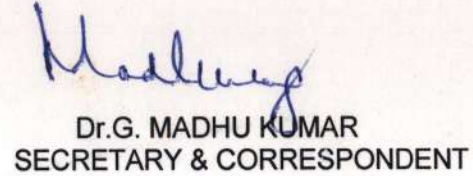 Dr.G. MADHU KUMAR
SECRETARY & CORRESPONDENT